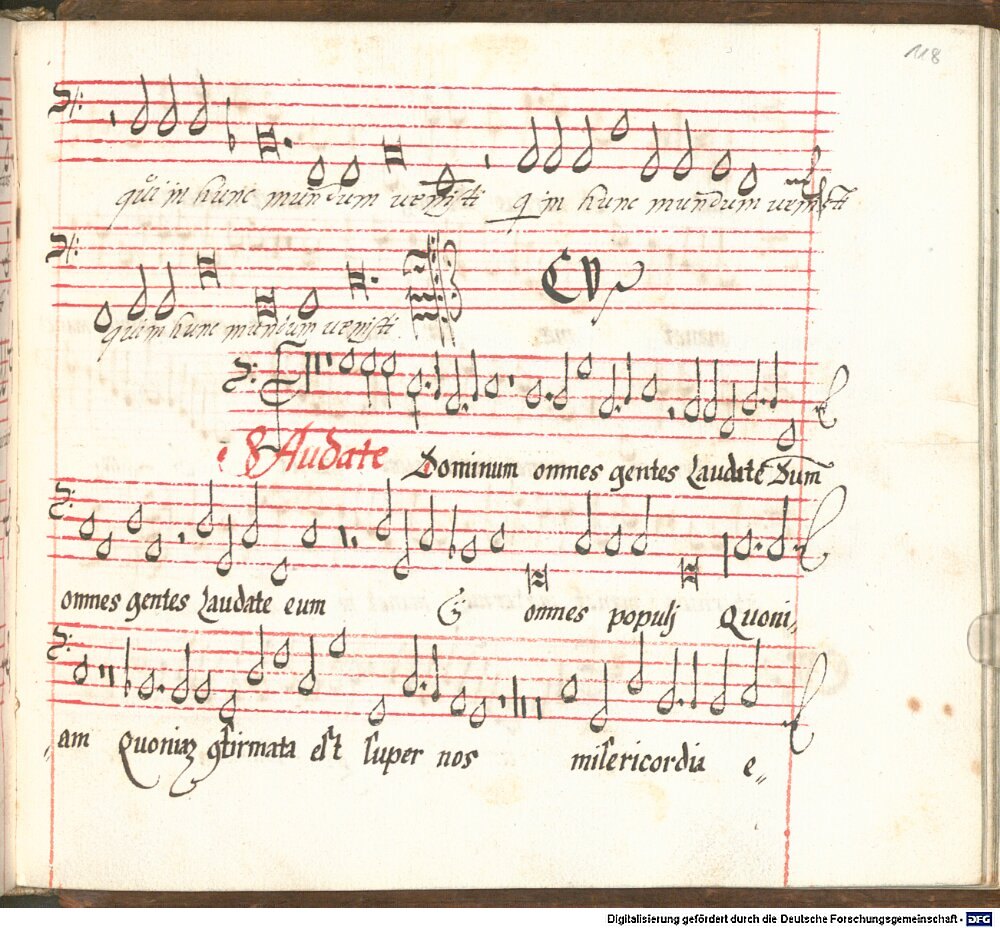 118
qui in hunc mundum venisti qi in hunc mundum venisti
qui in hunc mundum venisti
CV
8 Laudate Dominum omnes gentes Laudate Dum
omnes gentes Laudate eum & omnes populj Quoni„
„am Quoniaz gfirmata est super nos misericordia e„
Digitalisierung gefördert durch die Deutsche Forschungsgemeinschaft - DFG